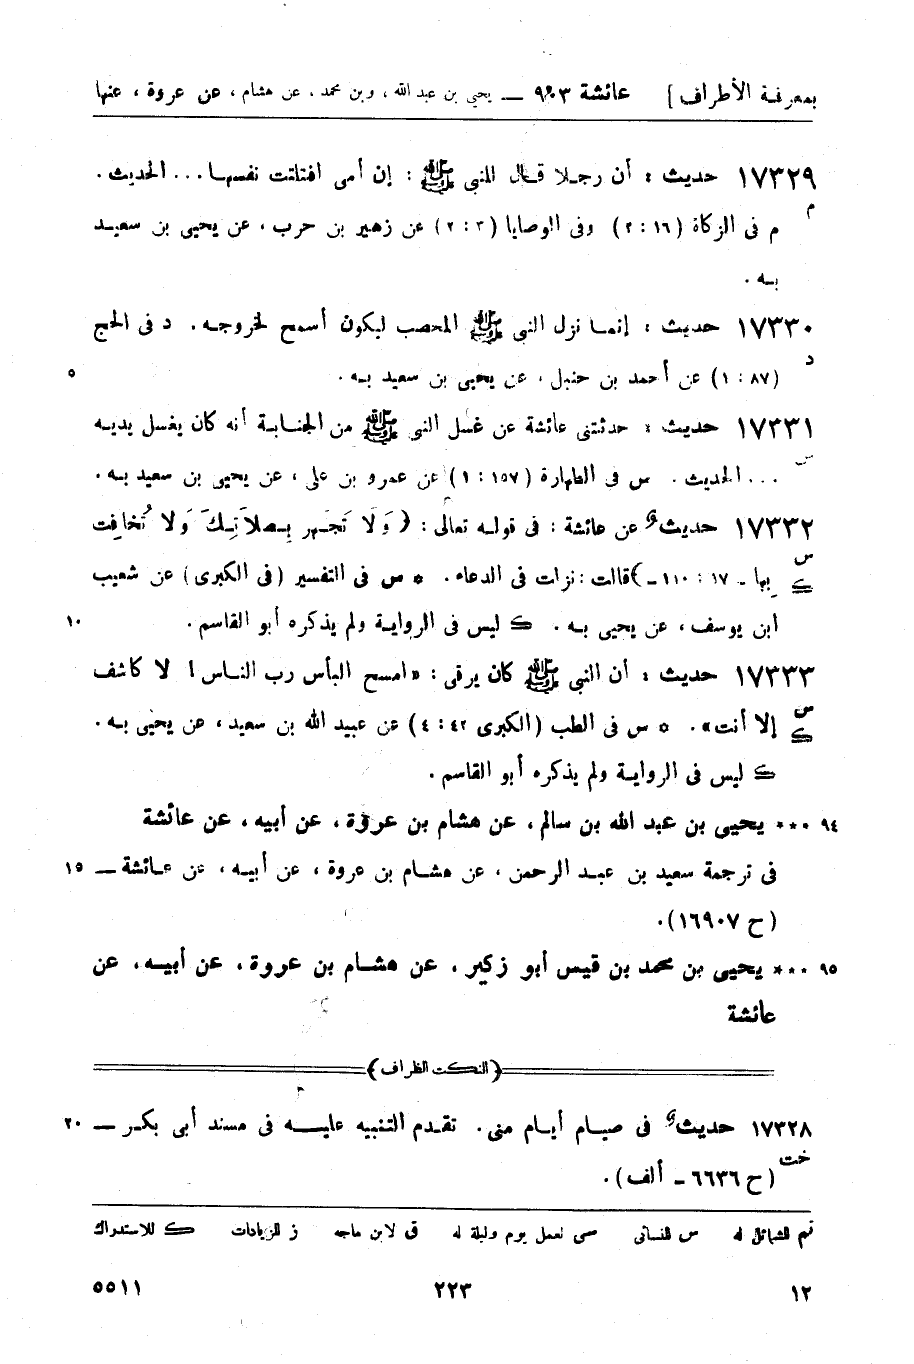 بمعرفة الأطراف] عائشة ٩٠٣ — يحيى بن عبد الله ، وبن محمد ، عن هشام ، عن عروة ، عنها
١٧٣٢٩ حديث : أن رجلا قال للنبي ﷺ : إن أمى افتلتت نفسها... الحديث .
م
م فى الزكاة (١٦ : ٢) وفى الوصايا (٣ : ٢) عن زهير بن حرب ، عن يحيى بن سعيد
به .
١٧٣٣٠ حديث : إنما نزل النبي ﷺ المحصب ليكون أسمح لخروجه . د فى الحج
د
(٨٧ : ١) عن أحمد بن حنبل ، عن يحيى بن سعيد به . ٥
١٧٣٣١ حديث : حدثتنى عائشة عن غسل النبي ﷺ من الجنابة أنه كان يغسل يديه
س
... الحديث . س فى الطهارة (١٥٧ : ١) عن عمرو بن على ، عن يحيى بن سعيد به .
١٧٣٣٢ حديث عن عائشة : فى قوله تعالى : (وَلَا تَجهر بِصلَاتِكَ وَلَا تُخَافِت
س
ك
بِها ـ ١٧ : ١١٠ ـ) قالت : نزلت فى الدعاء . * س فى التفسير (فى الكبرى) عن شعيب
ابن يوسف ، عن يحيى به . ك ليس فى الرواية ولم يذكره أبو القاسم . ١٠
١٧٣٣٣ حديث : أن النبي ﷺ كان يرقى : «امسح البأس رب الناس ! لا كاشف
س
ك
إلا أنت» . * س فى الطب (الكبرى ٤٢ : ٤) عن عبيد الله بن سعيد ، عن يحيى به .
ك ليس فى الرواية ولم يذكره أبو القاسم .
٩٤ ••• يحيى بن عبد الله بن سالم ، عن هشام بن عروة ، عن أبيه ، عن عائشة
فى ترجمة سعيد بن عبد الرحمن ، عن هشام بن عروة ، عن أبيه ، عن عائشة — ١٥
(ح ١٦٩٠٧) .
٩٥ ••• يحيى بن محمد بن قيس أبو زكير ، عن هشام بن عروة ، عن أبيه ، عن
عائشة
(النكت الظراف)
١٧٣٢٨ حديث فى صيام أيام منى . تقدم التنبيه عليه فى مسند أبى بكر — ٢٠
خت
(ح ٦٦٣٦ ـ ألف) .
تم للشمائل له س للنسائى سى لعمل يوم وليلة له ق لابن ماجه ز للزيادات ك للاستدراك
١٢ ٢٢٣ ٥٥١١